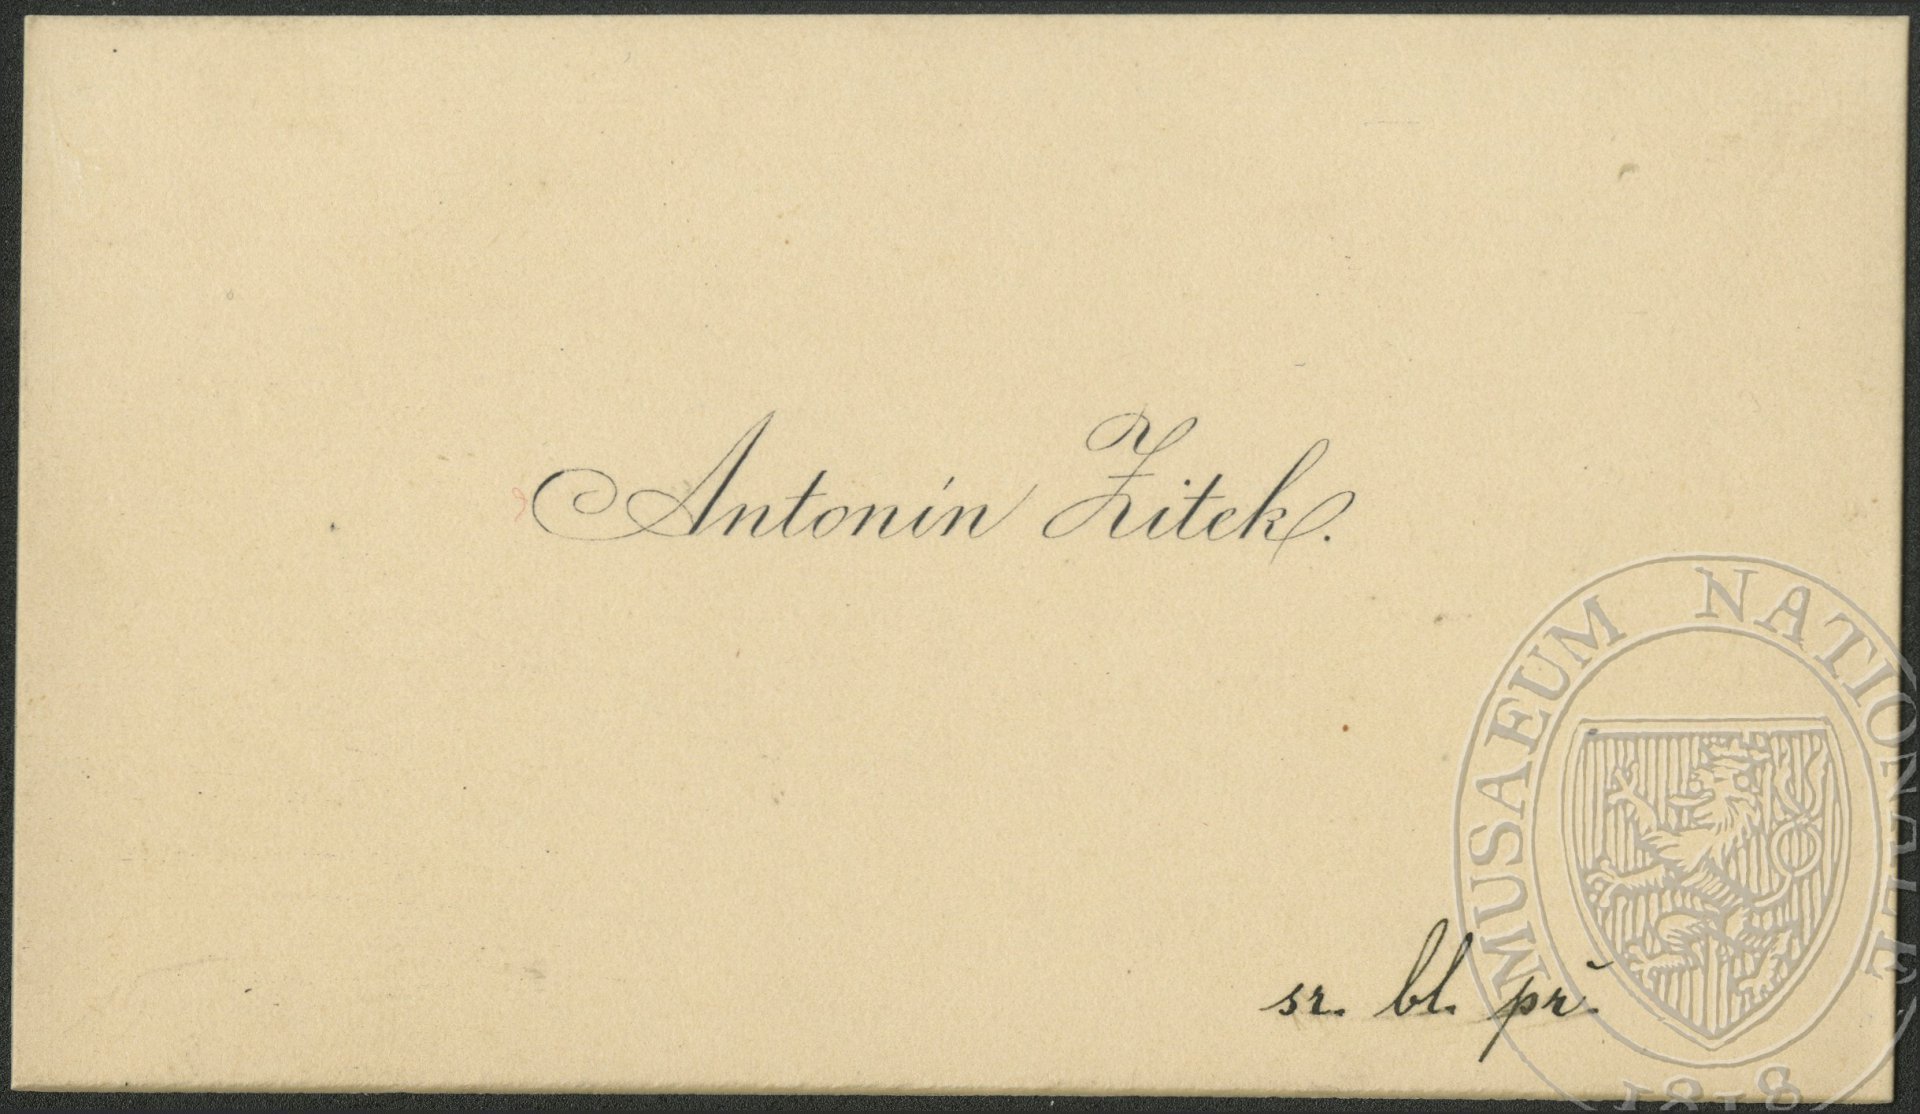 Antonín Zitek.
sr. bl. př.
MUSAEUM NATIONALE
1818